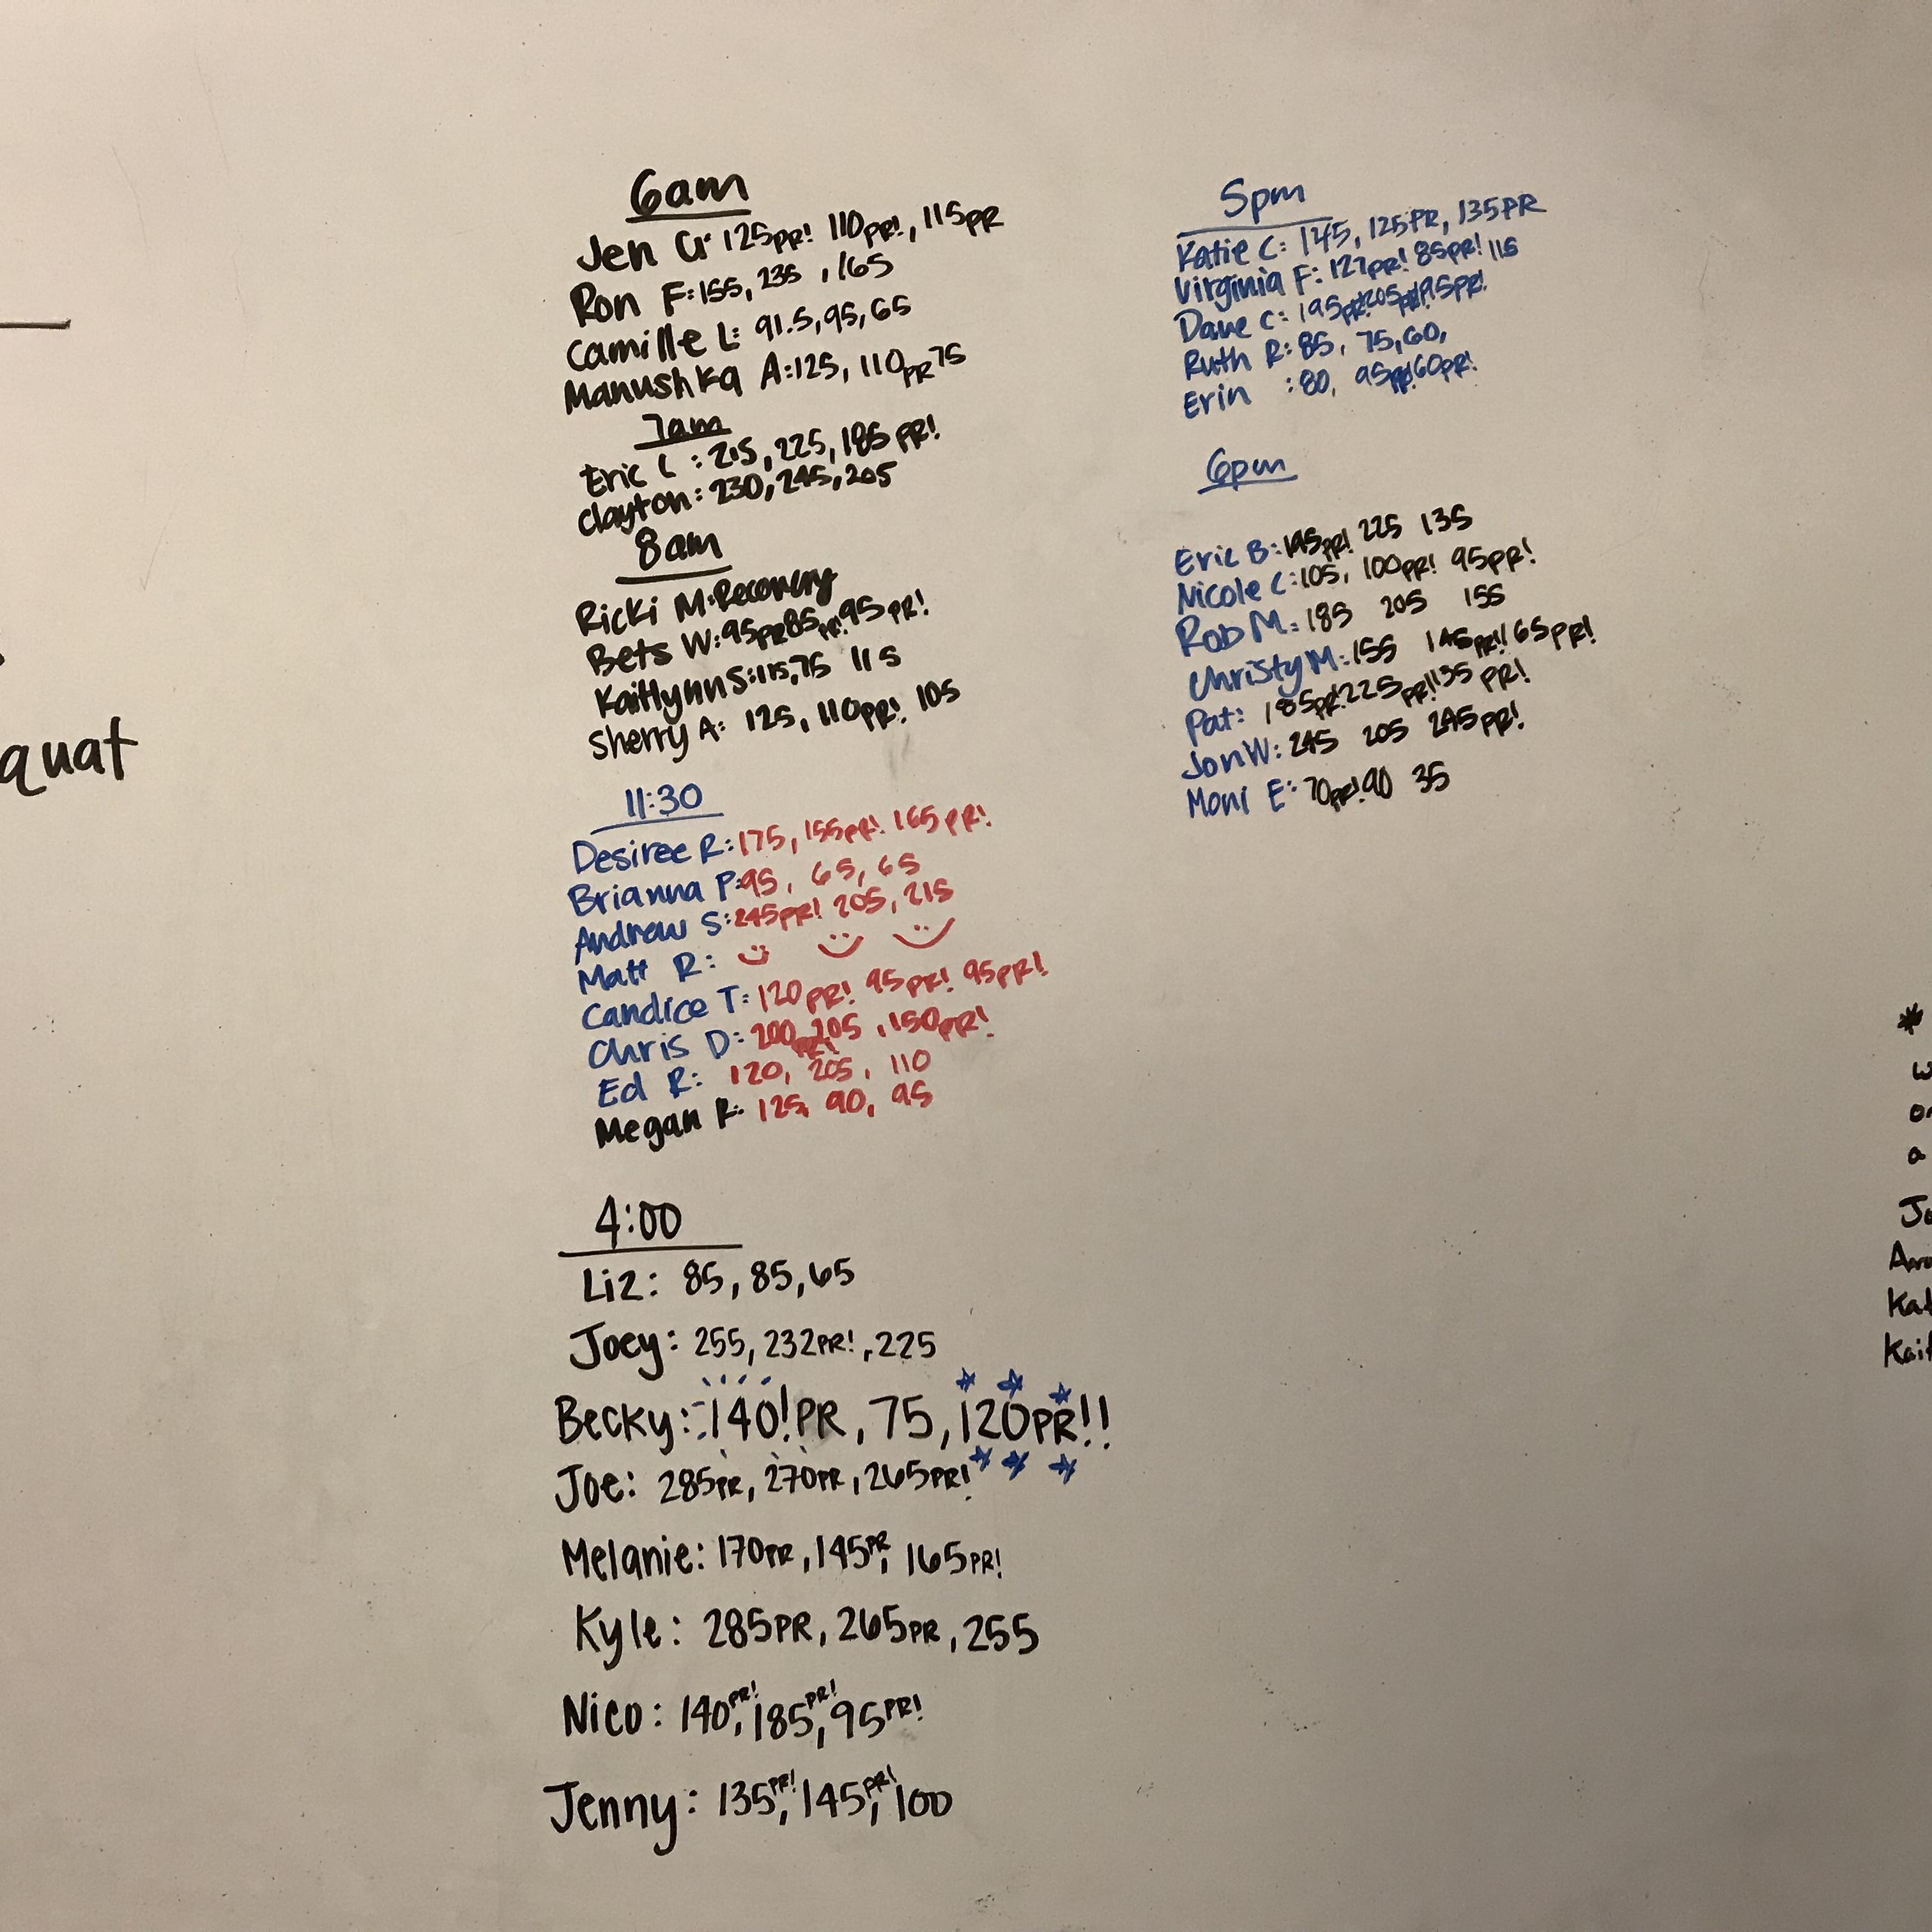 quat
6am
Jen G: 125PR! 110PR!, 115PR
Ron F: 155, 235, 165
Camille L: 91.5, 95, 65
Manushka A: 125, 110PR 75
7am
Eric C: 215, 225, 185 PR!
Clayton: 230, 245, 205
8am
Ricki M: Recovery
Bets W: 95PR 85PR! 95PR!
Kaitlynn S: 115, 75 115
Sherry A: 125, 110PR! 105
11:30
Desiree R: 175, 155PR! 165PR!
Brianna P: 95, 65, 65
Andrew S: 245PR! 205, 215
Matt R:
Candice T: 120PR! 95PR! 95PR!
Chris D: 200PR! 205, 150PR!
Ed R: 120, 205, 110
Megan R: 125, 90, 95
4:00
Liz: 85, 85, 65
Joey: 255, 232PR!, 225
Becky: 140!PR, 75, 120PR!!
Joe: 285PR, 270PR, 265PR!
Melanie: 170PR, 145PR, 165PR!
Kyle: 285PR, 265PR, 255
Nico: 140PR!, 185PR!, 95PR!
Jenny: 135PR!, 145PR!, 100
5pm
Katie C: 145, 125PR, 135PR
Virginia F: 127PR! 85PR! 115
Dave C: 195PR! 205PR! 195PR!
Ruth R: 85, 75, 60,
Erin : 80, 95PR! 60PR!
6pm
Eric B: 195PR! 225 135
Nicole C: 105, 100PR! 95PR!
Rob M: 185 205 155
Christy M: 155 145PR! 165PR!
Pat: 185PR! 225PR! 135 PR!
Jon W: 245 205 245PR!
Moni E: 70PR! 90 35
*
w
a
Kait